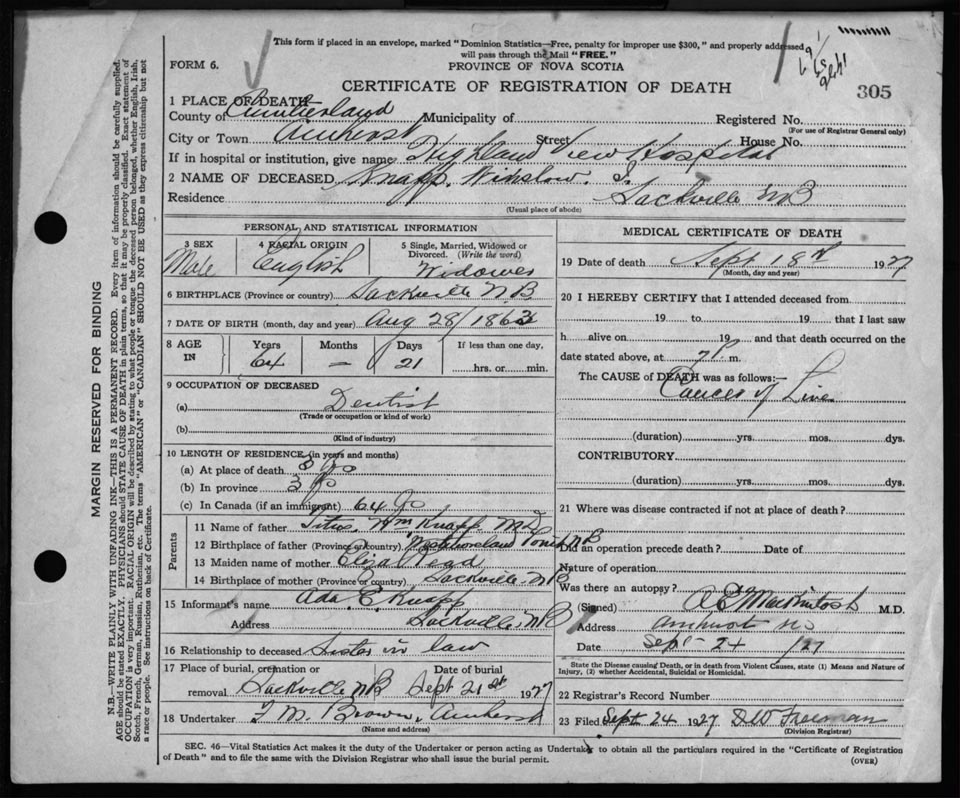 This form if placed in an envelope, marked "Dominion Statistics—Free, penalty for improper use $300," and properly addressed
will pass through the Mail "FREE."
FORM 6.
PROVINCE OF NOVA SCOTIA
CERTIFICATE OF REGISTRATION OF DEATH
305
1 PLACE OF DEATH
County of Cumberland Municipality of Registered No.
(For use of Registrar General only)
City or Town Amherst Street House No.
If in hospital or institution, give name Highland View Hospital
2 NAME OF DECEASED Knapp, Winslow.
Residence Sackville NB
(Usual place of abode)
PERSONAL AND STATISTICAL INFORMATION
3 SEX 4 RACIAL ORIGIN 5 Single, Married, Widowed or Divorced. (Write the word)
Male English Widower
6 BIRTHPLACE (Province or country) Sackville N.B.
7 DATE OF BIRTH (month, day and year) Aug 28/1863
8 AGE IN Years Months Days If less than one day,
64 — 21 hrs. or min.
9 OCCUPATION OF DECEASED
(a) Dentist
(Trade or occupation or kind of work)
(b)
(Kind of industry)
10 LENGTH OF RESIDENCE (in years and months)
(a) At place of death 3
(b) In province 3
(c) In Canada (if an immigrant) 64
Parents
11 Name of father Titus Wm Knapp MD
12 Birthplace of father (Province or country) Westmorland NB
13 Maiden name of mother Read
14 Birthplace of mother (Province or country) Sackville NB
15 Informant's name Ada E. Knapp
Address Sackville, NB
16 Relationship to deceased Sister in law
17 Place of burial, cremation or removal Sackville NB Date of burial Sept 21st 1927
18 Undertaker Brown, Amherst
(Name and address)
MEDICAL CERTIFICATE OF DEATH
19 Date of death Sept 18th 1927
(Month, day and year)
20 I HEREBY CERTIFY that I attended deceased from
19 to 19 that I last saw
h alive on 19 and that death occurred on the
date stated above, at 7P m.
The CAUSE of DEATH was as follows:—
Cancer of Liver
(duration) yrs. mos. dys.
CONTRIBUTORY
(duration) yrs. mos. dys.
21 Where was disease contracted if not at place of death?
Did an operation precede death? Date of
Nature of operation
Was there an autopsy?
(Signed) MacKintosh M.D.
Address Amherst NS
Date Sept 24 /27
State the Disease causing Death, or in death from Violent Causes, state (1) Means and Nature of
Injury, (2) whether Accidental, Suicidal or Homicidal.
22 Registrar's Record Number
23 Filed Sept 24 1927 DW Freeman
(Division Registrar)
SEC. 46—Vital Statistics Act makes it the duty of the Undertaker or person acting as Undertaker to obtain all the particulars required in the "Certificate of Registration
of Death" and to file the same with the Division Registrar who shall issue the burial permit.
(OVER)
MARGIN RESERVED FOR BINDING
N.B.—WRITE PLAINLY WITH UNFADING INK—THIS IS A PERMANENT RECORD. Every item of information should be carefully supplied.
AGE should be stated EXACTLY. PHYSICIANS should STATE CAUSE OF DEATH in plain terms, so that it may be properly classified. Exact statement of
OCCUPATION is very important. RACIAL ORIGIN will be described by stating to what people or tongue the deceased person belonged, whether English, Irish,
Scotch, French, German, Russian, Ruthenian, etc. The terms "AMERICAN" or "CANADIAN" SHOULD NOT BE USED as they express citizenship but not
a race or people. See instructions on back of Certificate.